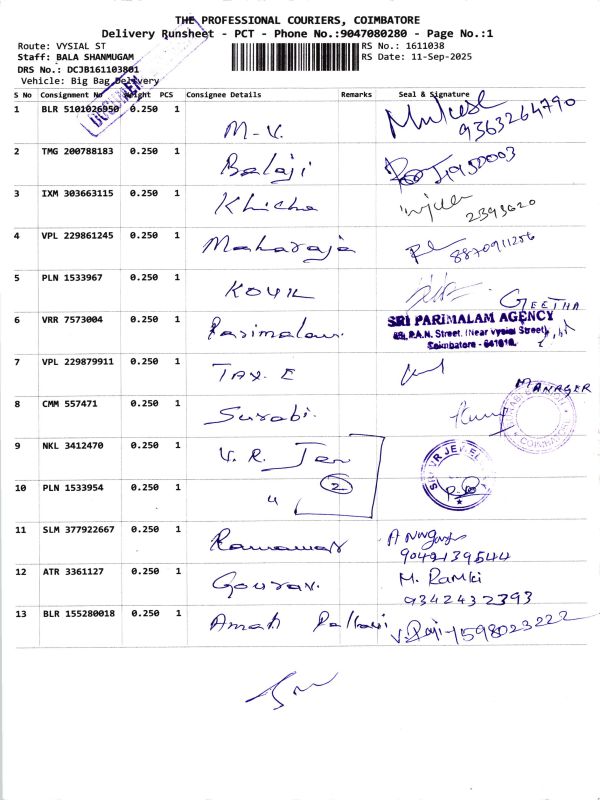 THE PROFESSIONAL COURIERS, COIMBATORE
Delivery Runsheet - PCT - Phone No.:9047080280 - Page No.:1
Route: VYSIAL ST
RS No.: 1611038
Staff: BALA SHANMUGAM
RS Date: 11-Sep-2025
DRS No.: DCJB161103801
Vehicle: Big Bag Delivery
S No Consignment No Weight PCS Consignee Details Remarks Seal & Signature
1 BLR 5101026950 0.250 1 M-V. 9363264790
2 TMG 200788183 0.250 1 Balaji
3 IXM 303663115 0.250 1 Khicha 2393620
4 VPL 229861245 0.250 1 Maharaja 8870911256
5 PLN 1533967 0.250 1 KOVIL GEETHA
6 VRR 7573004 0.250 1 Parimalam.
SRI PARIMALAM AGENCY
P.A.N. Street, (Near Vysial Street),
Coimbatore - 641010.
7 VPL 229879911 0.250 1 TAX. E
MANAGER
8 CMM 557471 0.250 1 Surabi.
COIMBATORE
9 NKL 3412470 0.250 1 V. R. Jew
10 PLN 1533954 0.250 1 " 2
11 SLM 377922667 0.250 1 Ramawar
9042139544
12 ATR 3361127 0.250 1 Gourav. M. Ramki
9342432393
13 BLR 155280018 0.250 1 Amah Pallavi V. Raji-1598023222